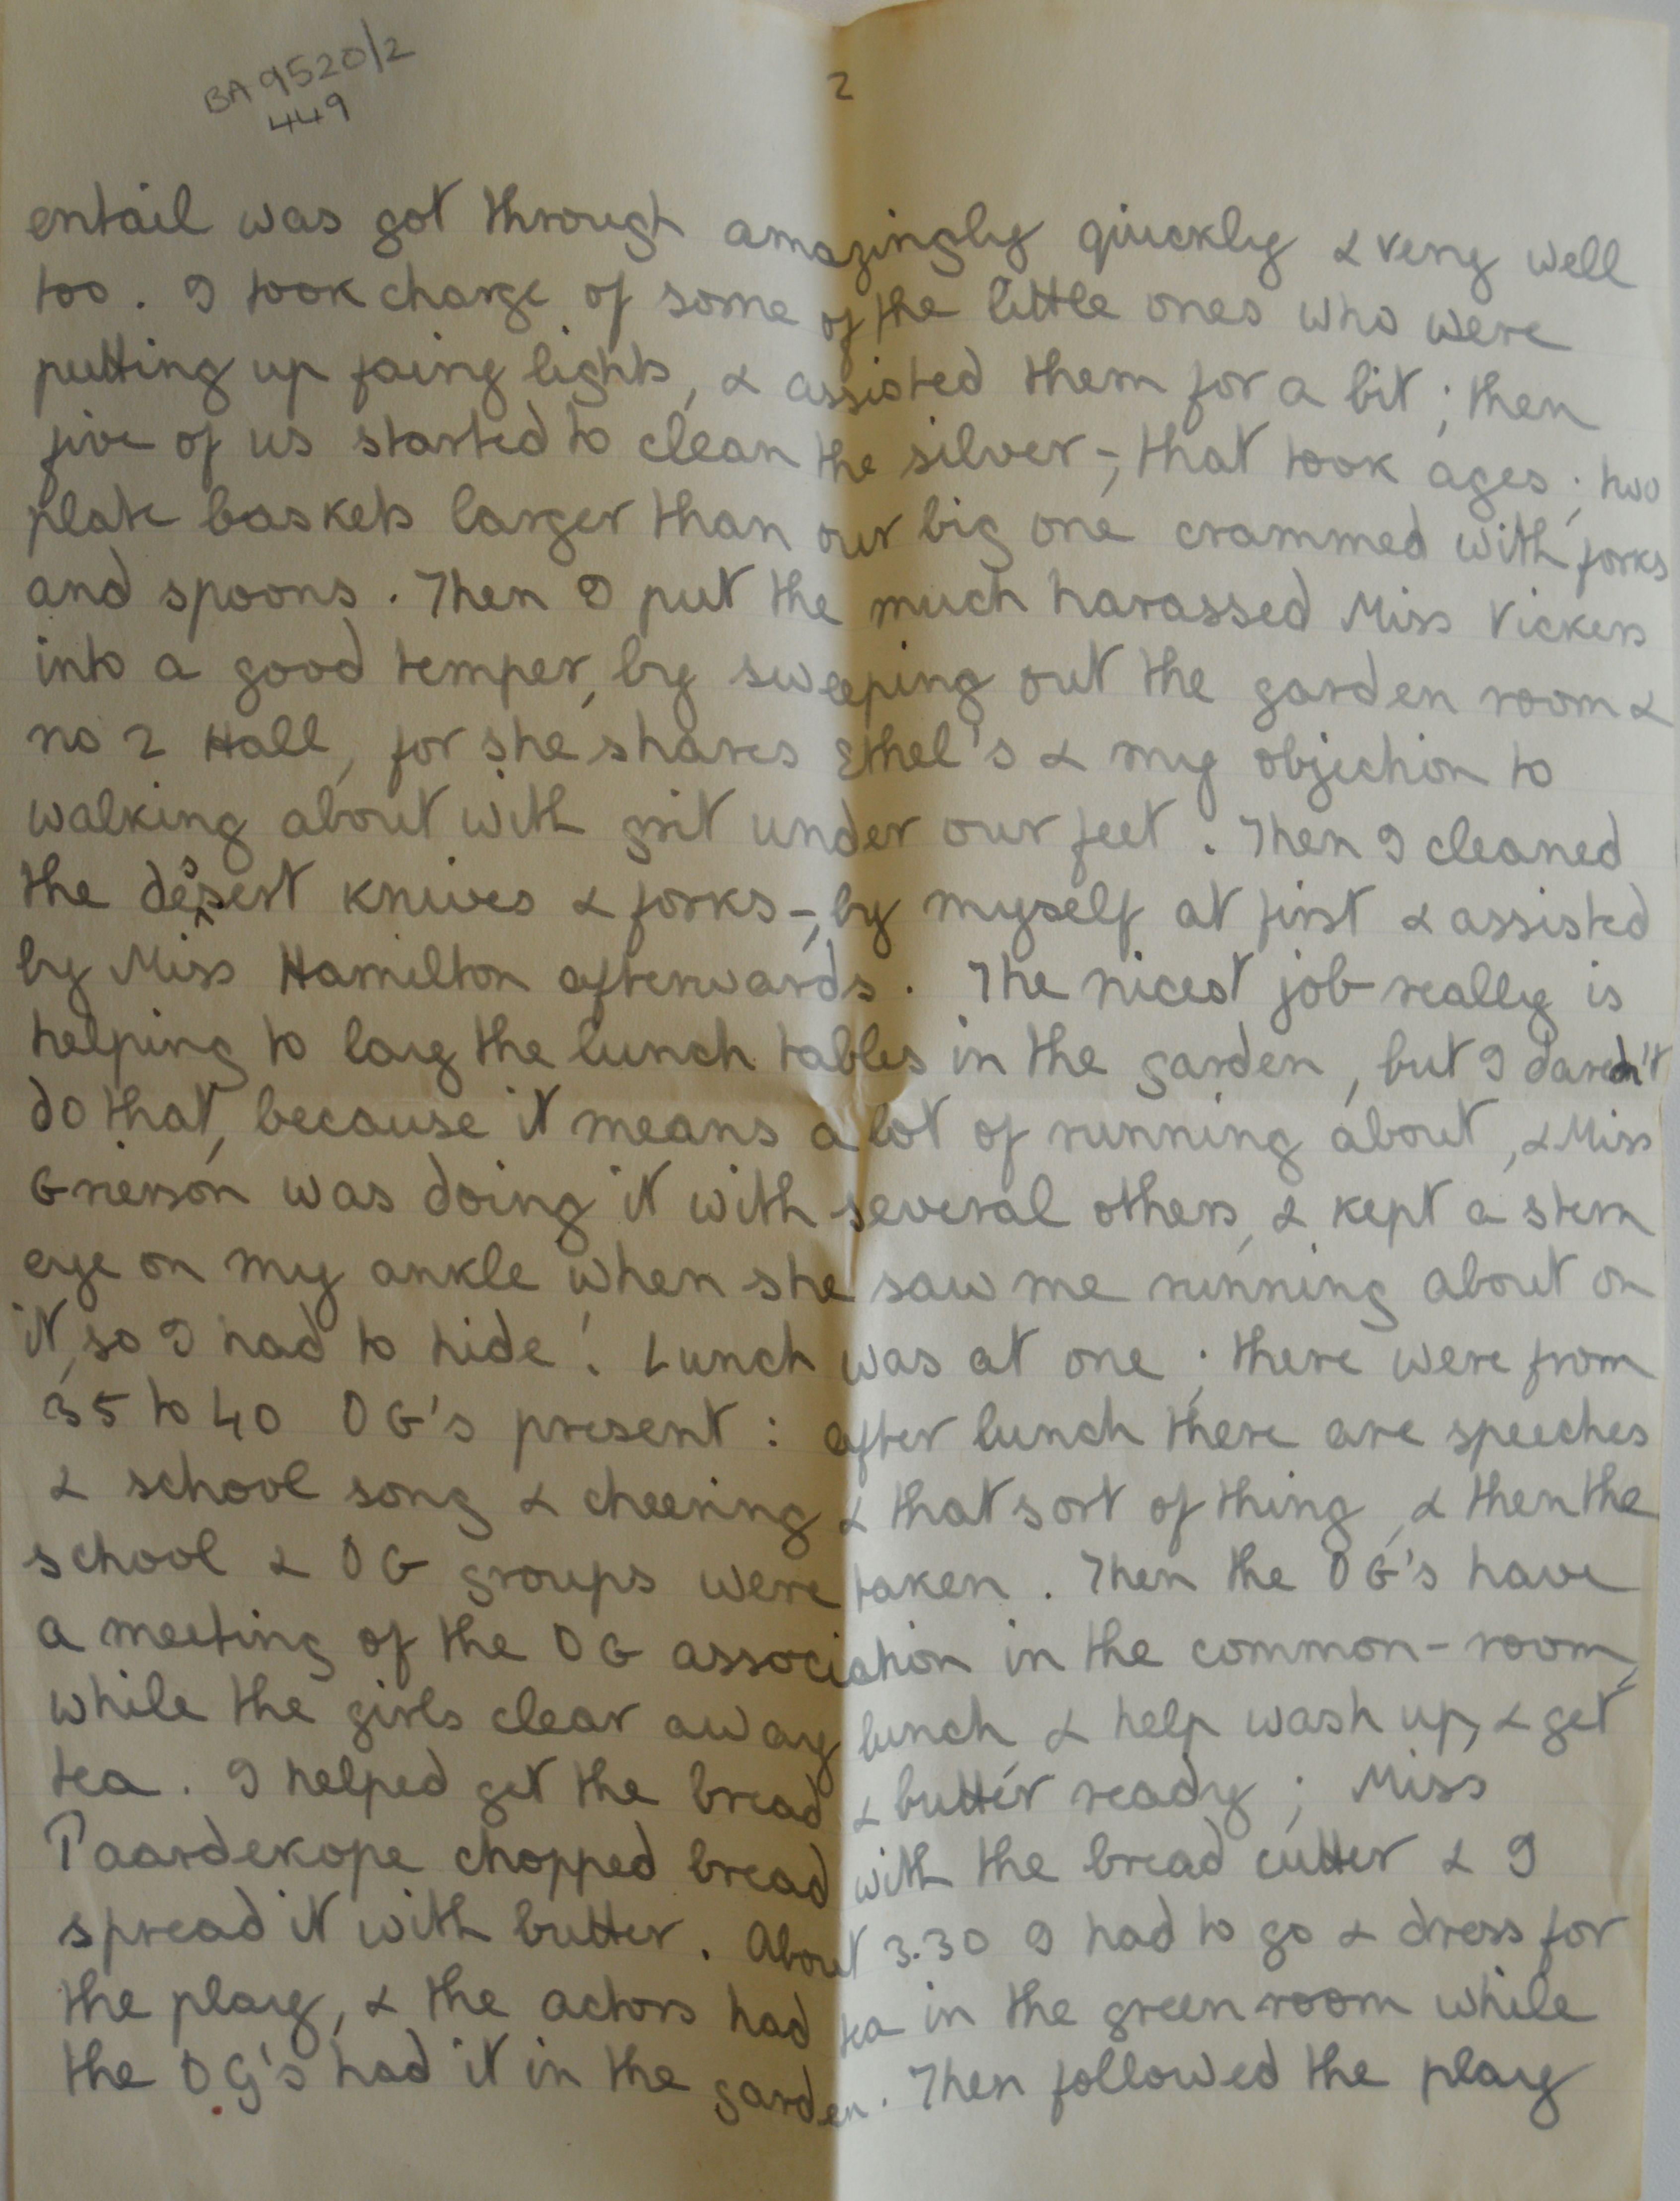 BA 9520/2
449
2
entail was got through amazingly quickly & very well
too. I took charge of some of the little ones who were
putting up fairy lights, & assisted them for a bit; then
five of us started to clean the silver -, that took ages; two
plate baskets larger than our big one crammed with forks
and spoons. Then I put the much harassed Miss Vickers
into a good temper, by sweeping out the garden room &
no 2 Hall, for she shares Ethel's & my objection to
walking about with grit under our feet. Then I cleaned
the dessert knives & forks -, by myself at first & assisted
by Miss Hamilton afterwards. The nicest job really is
helping to lay the lunch tables in the garden, but I daredn't
do that, because it means a lot of running about, & Miss
Grierson was doing it with several others, & kept a stern
eye on my ankle when she saw me running about on
it, so I had to hide! Lunch was at one; there were from
35 to 40 OG's present: after lunch there are speeches
& school song & cheering & that sort of thing, & then the
school & OG groups were taken. Then the OG's have
a meeting of the OG association in the common-room,
while the girls clear away lunch & help wash up, & get
tea. I helped get the bread & butter ready; Miss
Paardekope chopped bread with the bread cutter & I
spread it with butter. About 3.30 I had to go & dress for
the play, & the actors had tea in the green room while
the OG's had it in the garden. Then followed the play